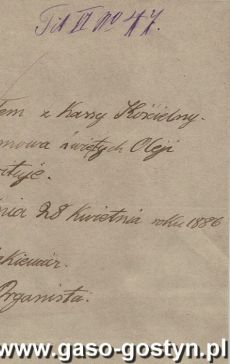 Tit II No 47.
łem z Kassy Kościelny.
świętych Oleji
ituje.
dnia 28 kwietnia roku 1886
kiewicz.
Organista.
www.gaso-gostyn.pl